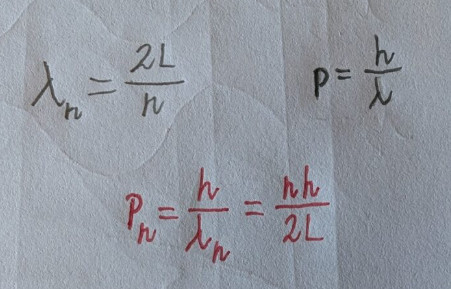 λₙ = 2L/n    p = h/λ
Pₙ = h/λₙ = nh/2L